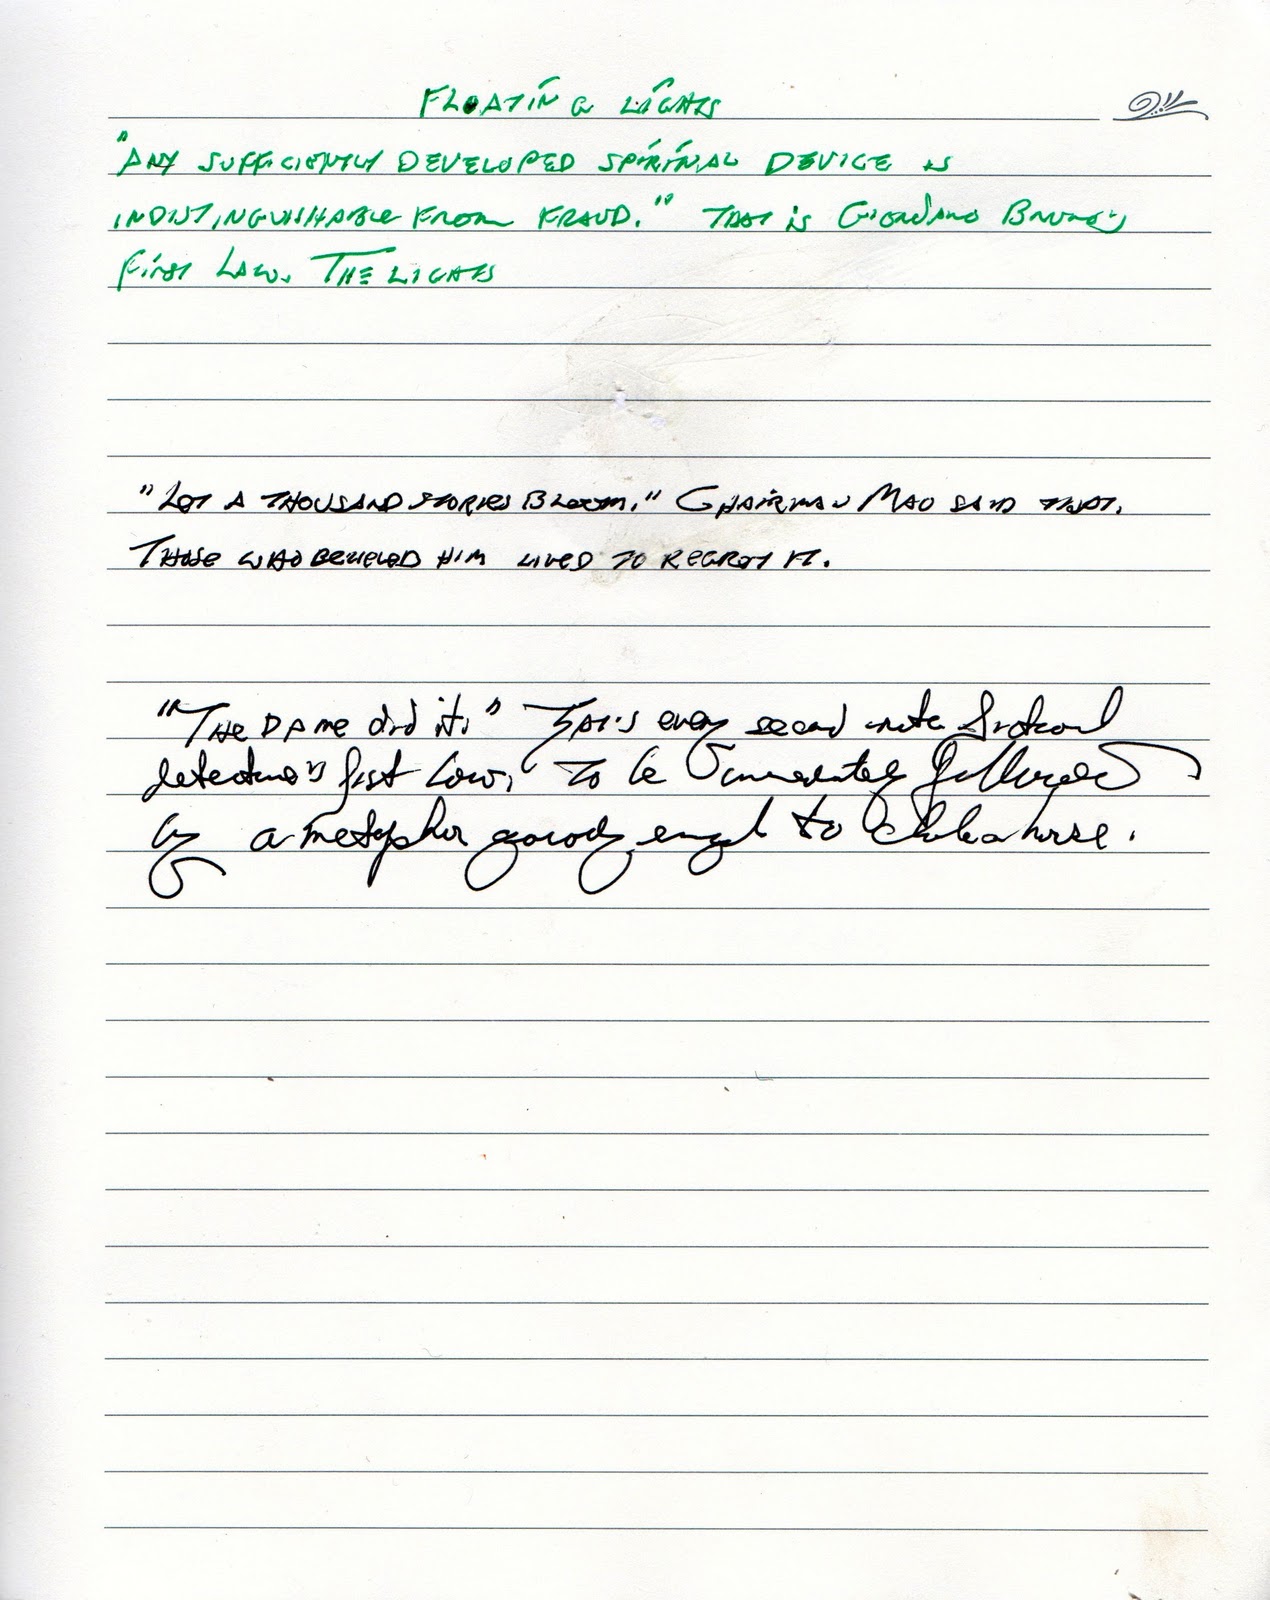 FLOATING LIGHTS
"ANY SUFFICIENTLY DEVELOPED SPIRITUAL DEVICE IS
INDISTINGUISHABLE FROM FRAUD." THAT IS GIORDANO BRUNO'S
FIRST LAW. THE LIGHTS
"LET A THOUSAND STORIES BLOOM." CHAIRMAN MAO SAID THAT.
THOSE WHO BELIEVED HIM LIVED TO REGRET IT.
"THE DAME did it." THAT'S every second rate fictional
detective's first law, To be immediately followed
by a metaphor gaudy enough to choke a horse.